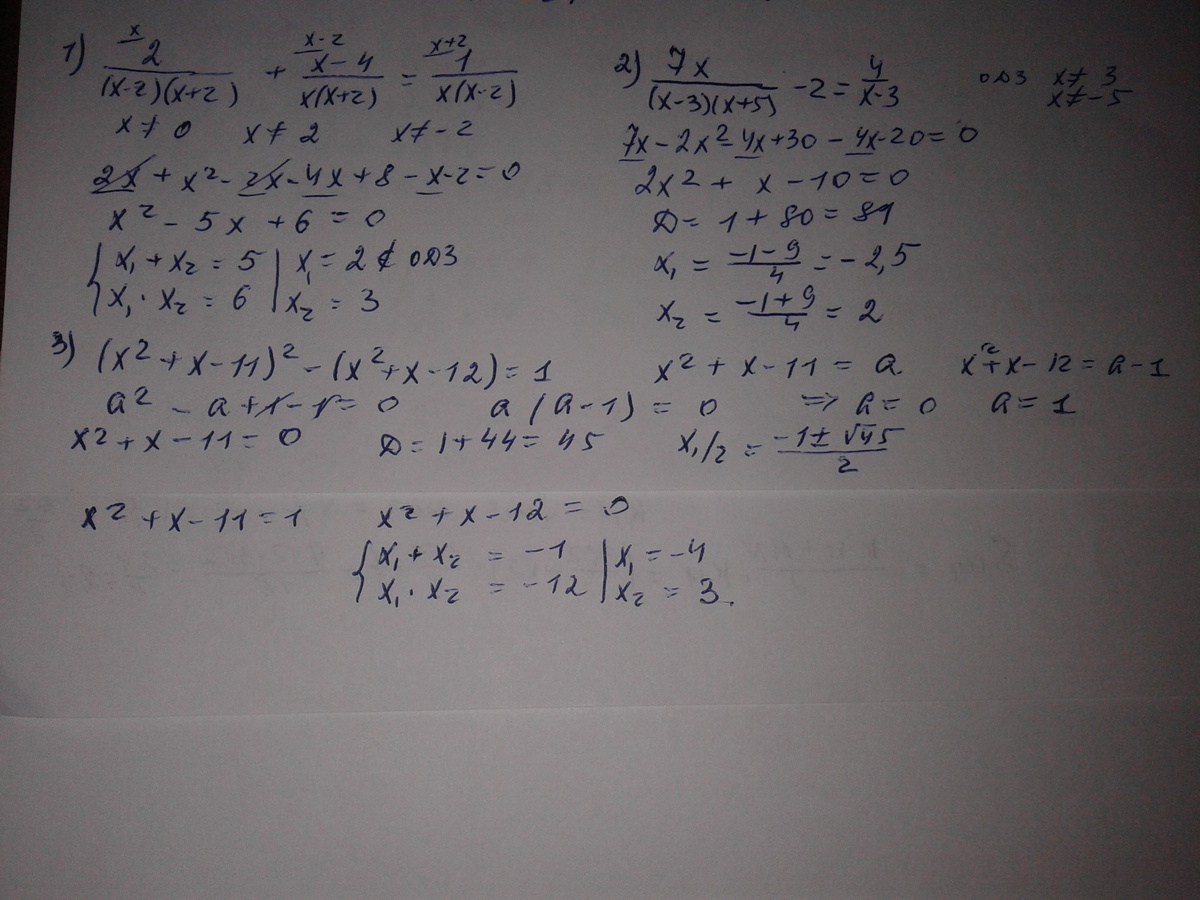 1) x 2/((x-2)(x+2)) + x-2 x-4/(x(x+2)) = x+2 1/(x(x-2))
x ≠ 0 x ≠ 2 x ≠ -2
2x + x² - 2x - 4x + 8 - x - 2 = 0
x² - 5x + 6 = 0
{ x₁ + x₂ = 5 | x₁ = 2 ∉ ОДЗ
x₁ · x₂ = 6 | x₂ = 3
2) 7x/((x-3)(x+5)) - 2 = 4/(x-3) ОДЗ x ≠ 3
x ≠ -5
7x - 2x² - 4x + 30 - 4x - 20 = 0
2x² + x - 10 = 0
D = 1 + 80 = 81
x₁ = (-1-9)/4 = -2,5
x₂ = (-1+9)/4 = 2
3) (x² + x - 11)² - (x² + x - 12) = 1 x² + x - 11 = a x² + x - 12 = a - 1
a² - a + 1 - 1 = 0 a (a-1) = 0 => a = 0 a = 1
x² + x - 11 = 0 D = 1 + 44 = 45 x₁/₂ = (-1 ± √45)/2
x² + x - 11 = 1 x² + x - 12 = 0
{ x₁ + x₂ = -1 | x₁ = -4
x₁ · x₂ = -12 | x₂ = 3.